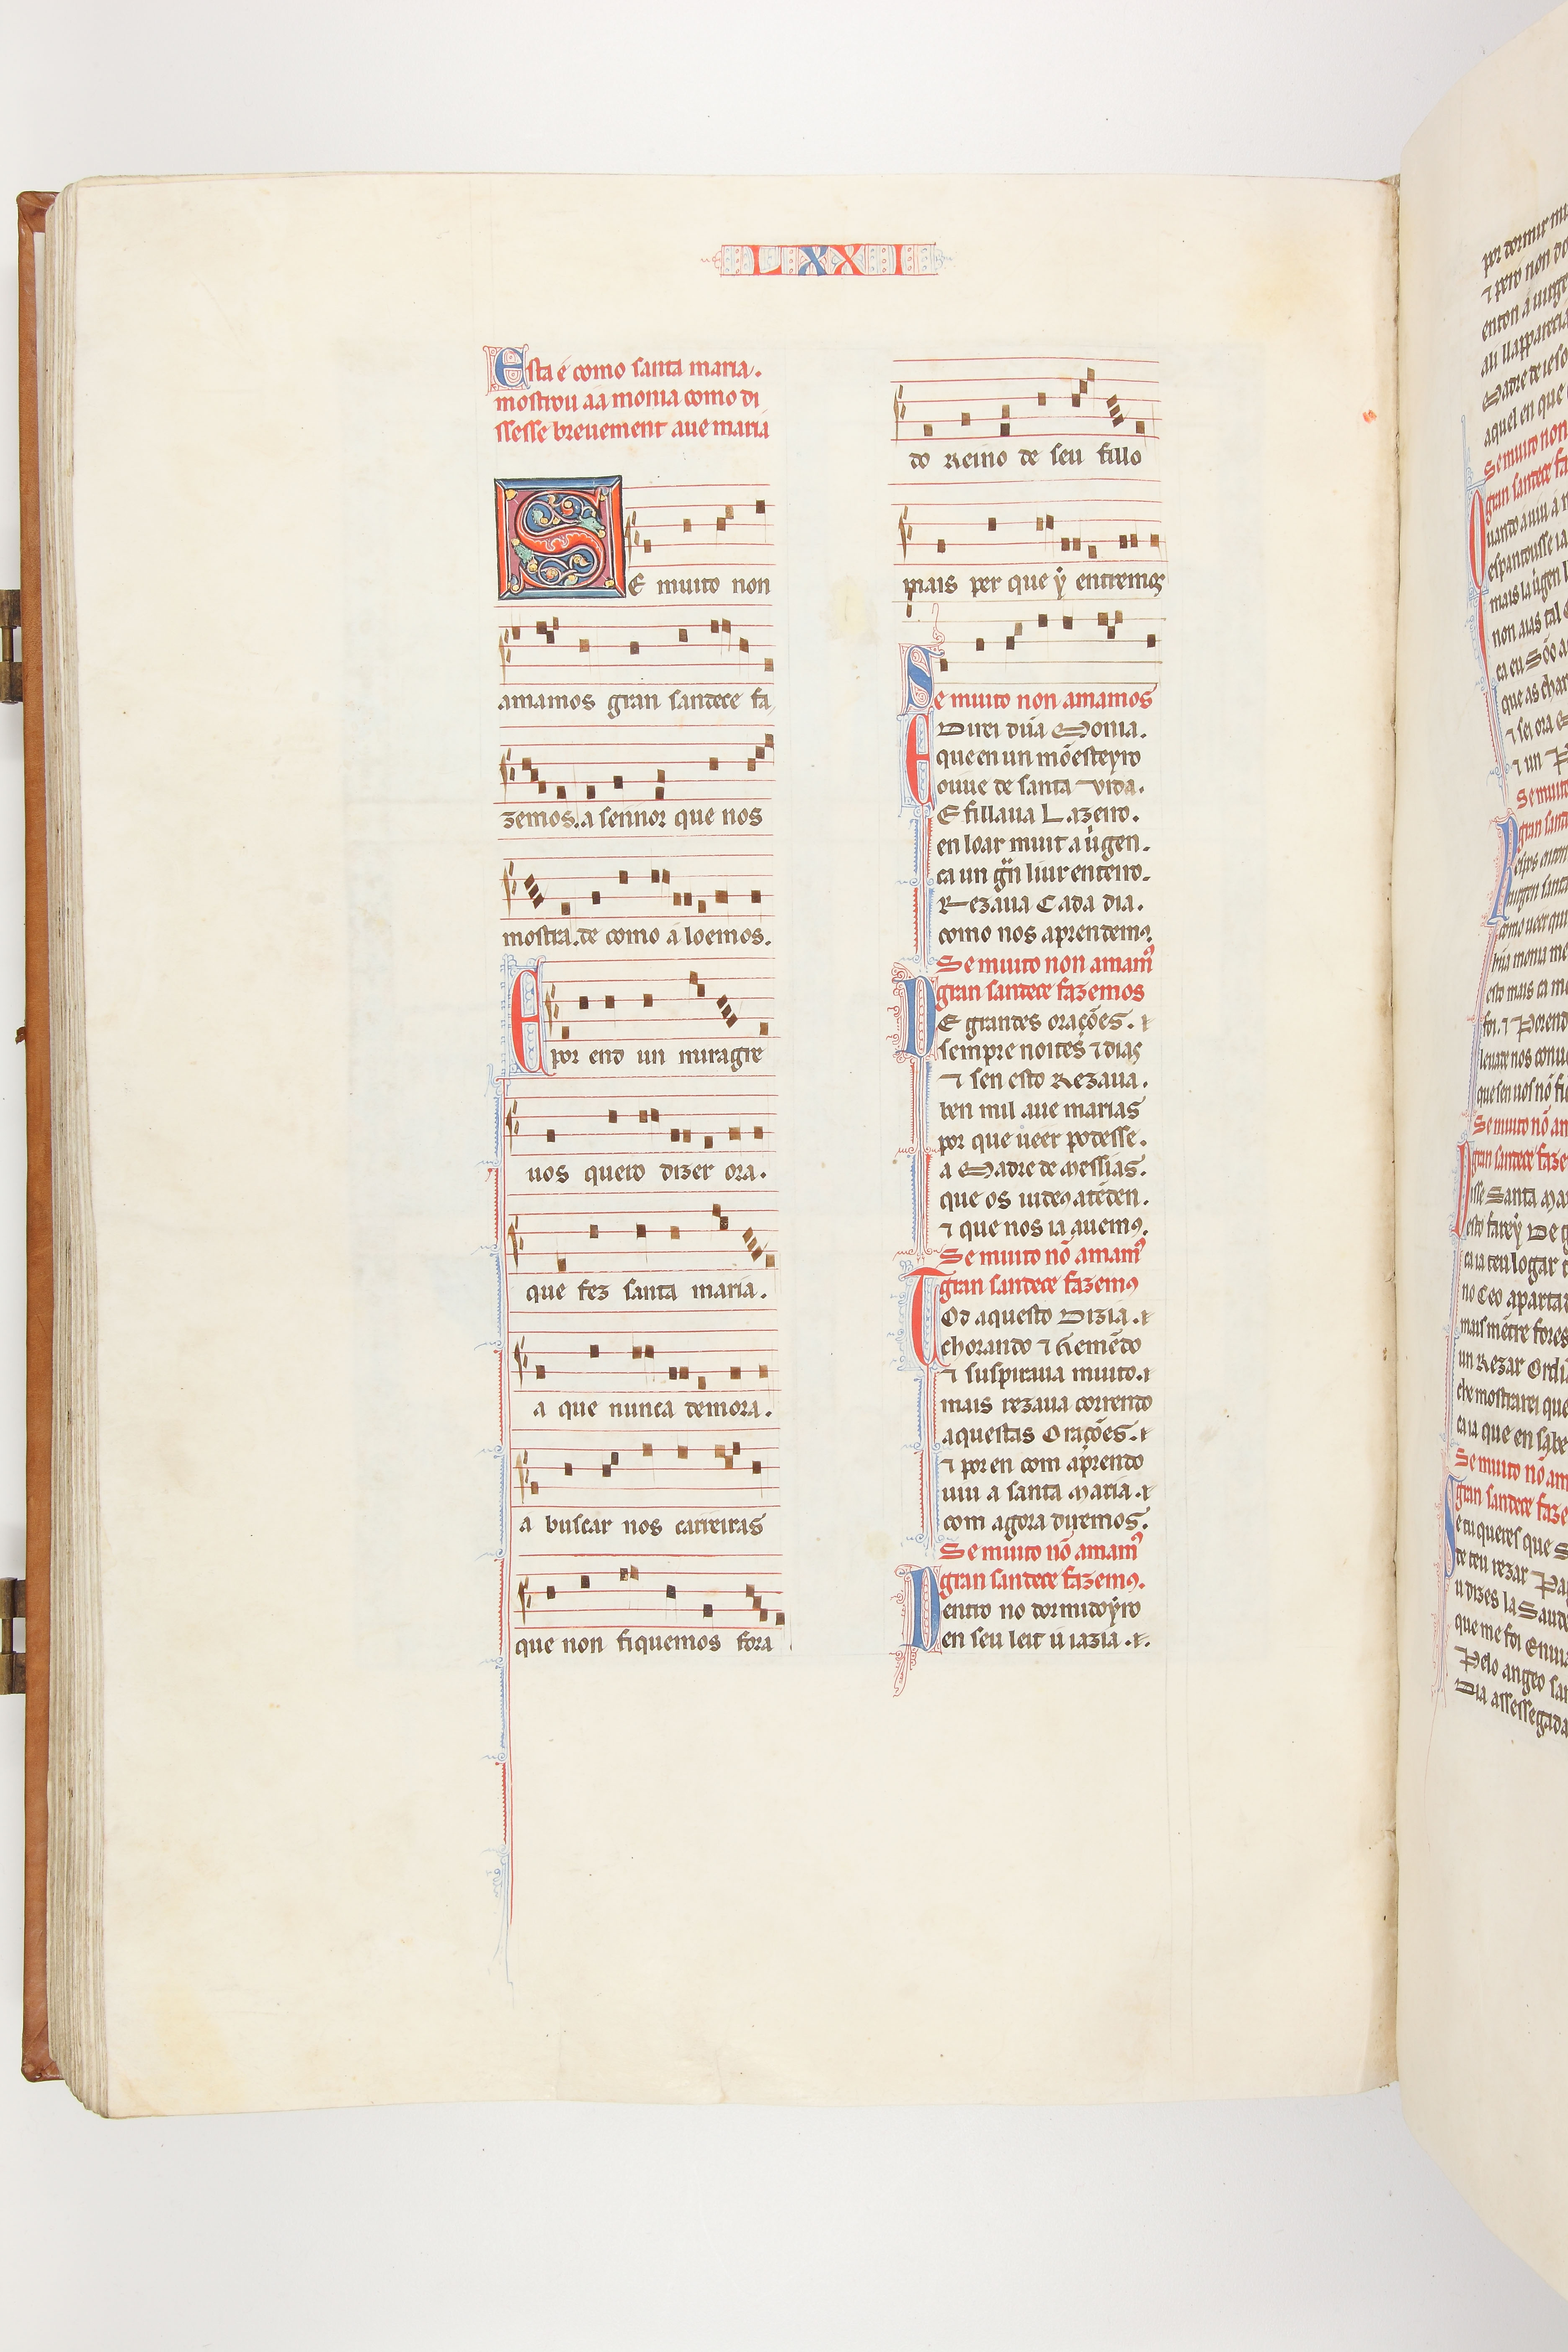 LXXI
Esta é como santa maria.
mostrou aa monia como di
ssesse breuement aue maria
SE muito non
amamos gran sandece fa
zemos. a sennor que nos
mostra. de como a loemos.
E por end un miragre
uos quero dizer ora.
que fez santa maria.
a que nunca demora.
a buscar nos carreiras
que non fiquemos fora
do Reino de seu fillo
mais per que ẏ entremos
Se muito non amamos
E Direi dũa Monia.
que en un mõesteyro
ouue de santa vida.
E fillaua Lazeiro.
en loar muit a uirgen.
ca un grã liur enteiro.
Rezaua Cada dia.
como nos aprendemꝯ.
Se muito non amamꝯ
gran sandece fazemos
DE grandes orações.
sempre noites ⁊ dias
⁊ sen esto Rezaua.
ben mil aue marias
por que ueer podesse.
a Madre de Messias.
que os iudeꝯ atẽden.
⁊ que nos ia auemꝯ.
Se muito nõ amamꝯ
gran sandece fazemꝯ
TOd aquesto Dizia.
chorando ⁊ Gemẽdo
⁊ suspiraua muito.
mais rezaua correndo
aquestas Orações.
⁊ por en com aprendo
uiu a santa Maria.
com agora diremos.
Se muito nõ amamꝯ
gran sandece fazemꝯ.
Dentro no dormidoyro
en seu leit u iazia.
por dormir
⁊ pero non
enton a uirge
ali ll apparecia
Madre de ieso
aquel en que
Se muito non
gran sandece fa
Quando a uiu a
espantousse ia
mais la uirgen
non aias tal
ca eu Sõo a
que as char
⁊ sei ora
⁊ un
Se muito
gran sand
Se muito nõ am
gran sandece faze
Disse Santa Ma
esto farey De g
ca ia teu logar
no Ceo apartad
mais mẽtre fores
un Rezar Ordi
che mostrarei que
ca ia que en sabe
Se muito nõ am
gran sandece faze
Se tu queres que
de teu rezar
u dizes la Saud
que me foi Enuia
Pelo angeo san
Dia assessegada